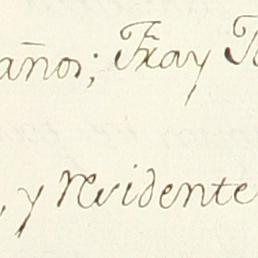 años; Fray
, y residente